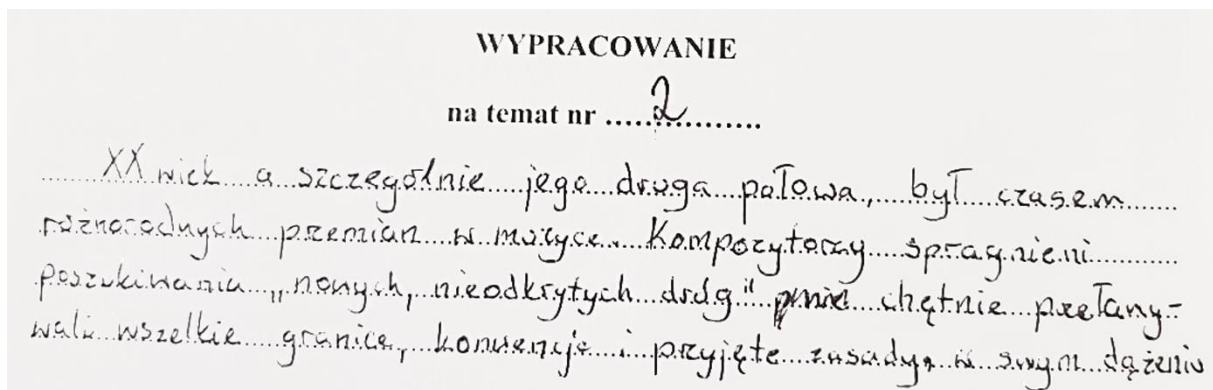 WYPRACOWANIE
na temat nr .....2...............
XX wiek a szczególnie jego druga połowa, był czasem
różnorodnych przemian w muzyce. Kompozytorzy spragnieni
poszukiwania „nowych, nieodkrytych dróg" chętnie przełamy-
wali wszelkie granice, konwencje i przyjęte zasady, w swym dążeniu